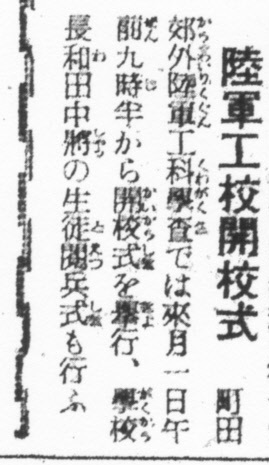 陸軍工校開校式
町田
郊外陸軍工科學査では來月一日午
前九時半から開校式を擧行、學校
長和田中將の生徒閲兵式も行ふ